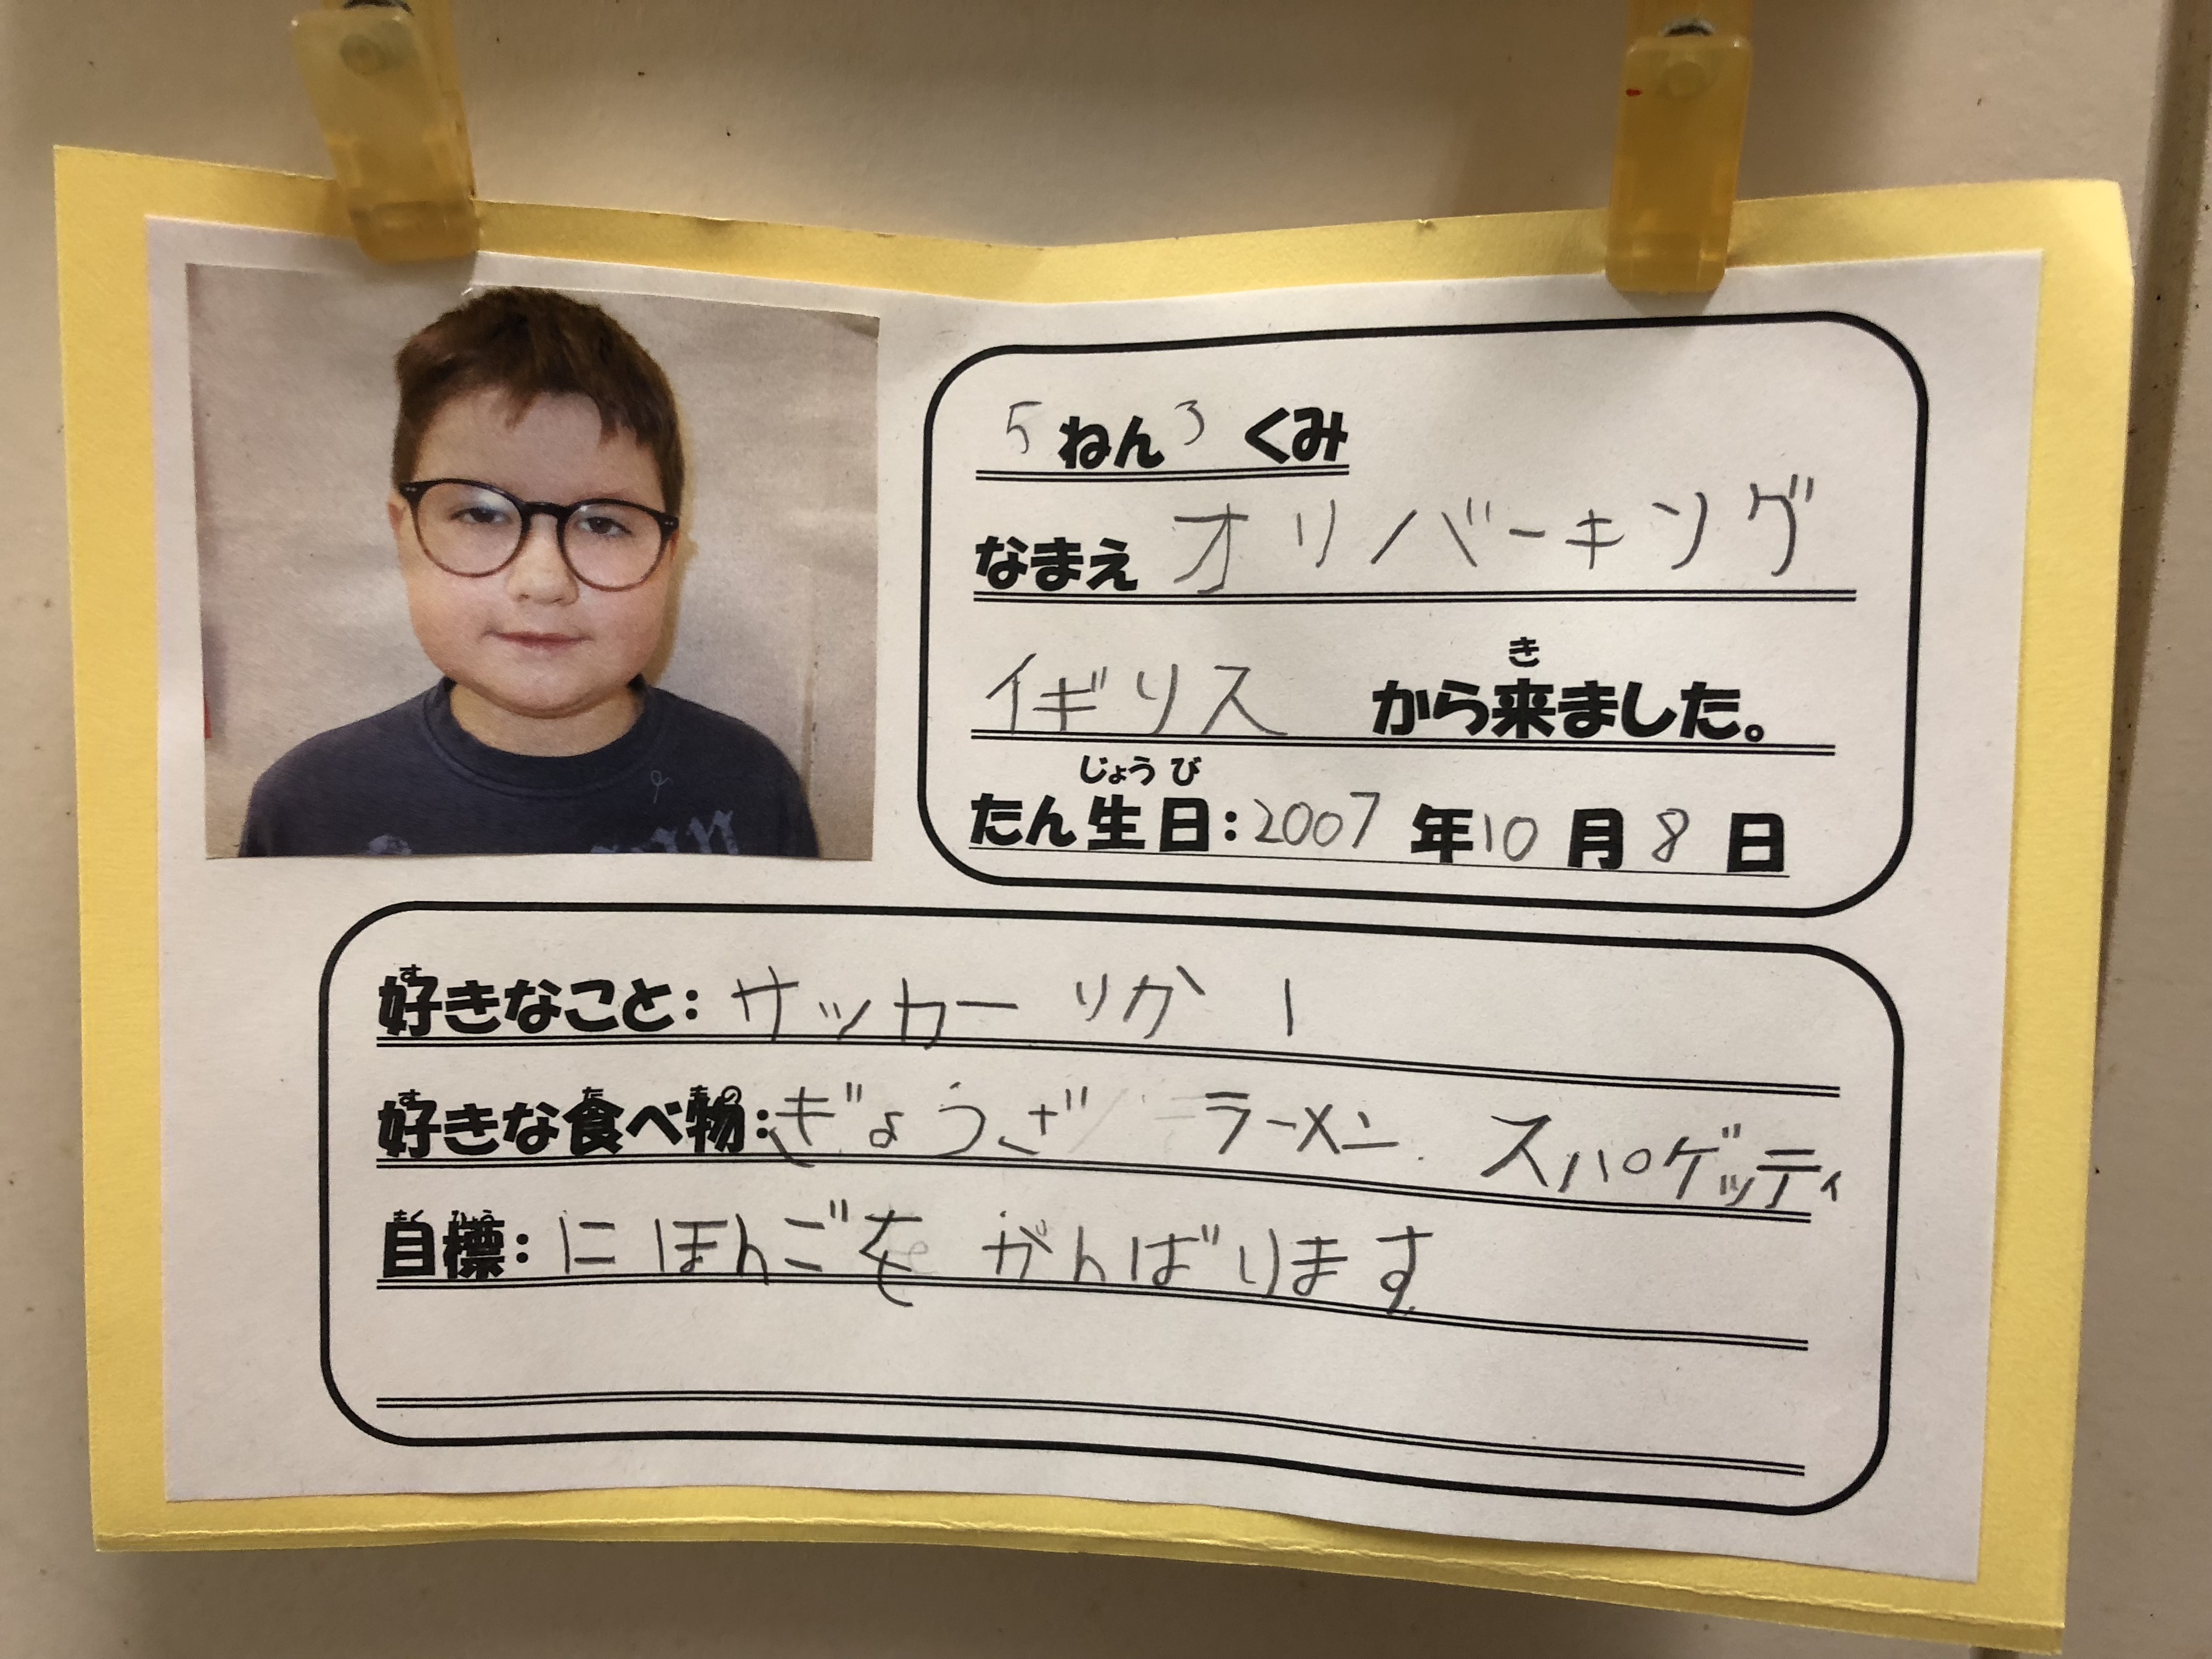 5ねん3くみ
なまえ オリバーキング
き
イギリス から来ました。
じょうび
たん生日：2007年10月8日
す
好きなこと：サッカー りか
す た もの
好きな食べ物：ぎょうざ ラーメン スパゲッティ
もくひょう
目標：にほんごを がんばります